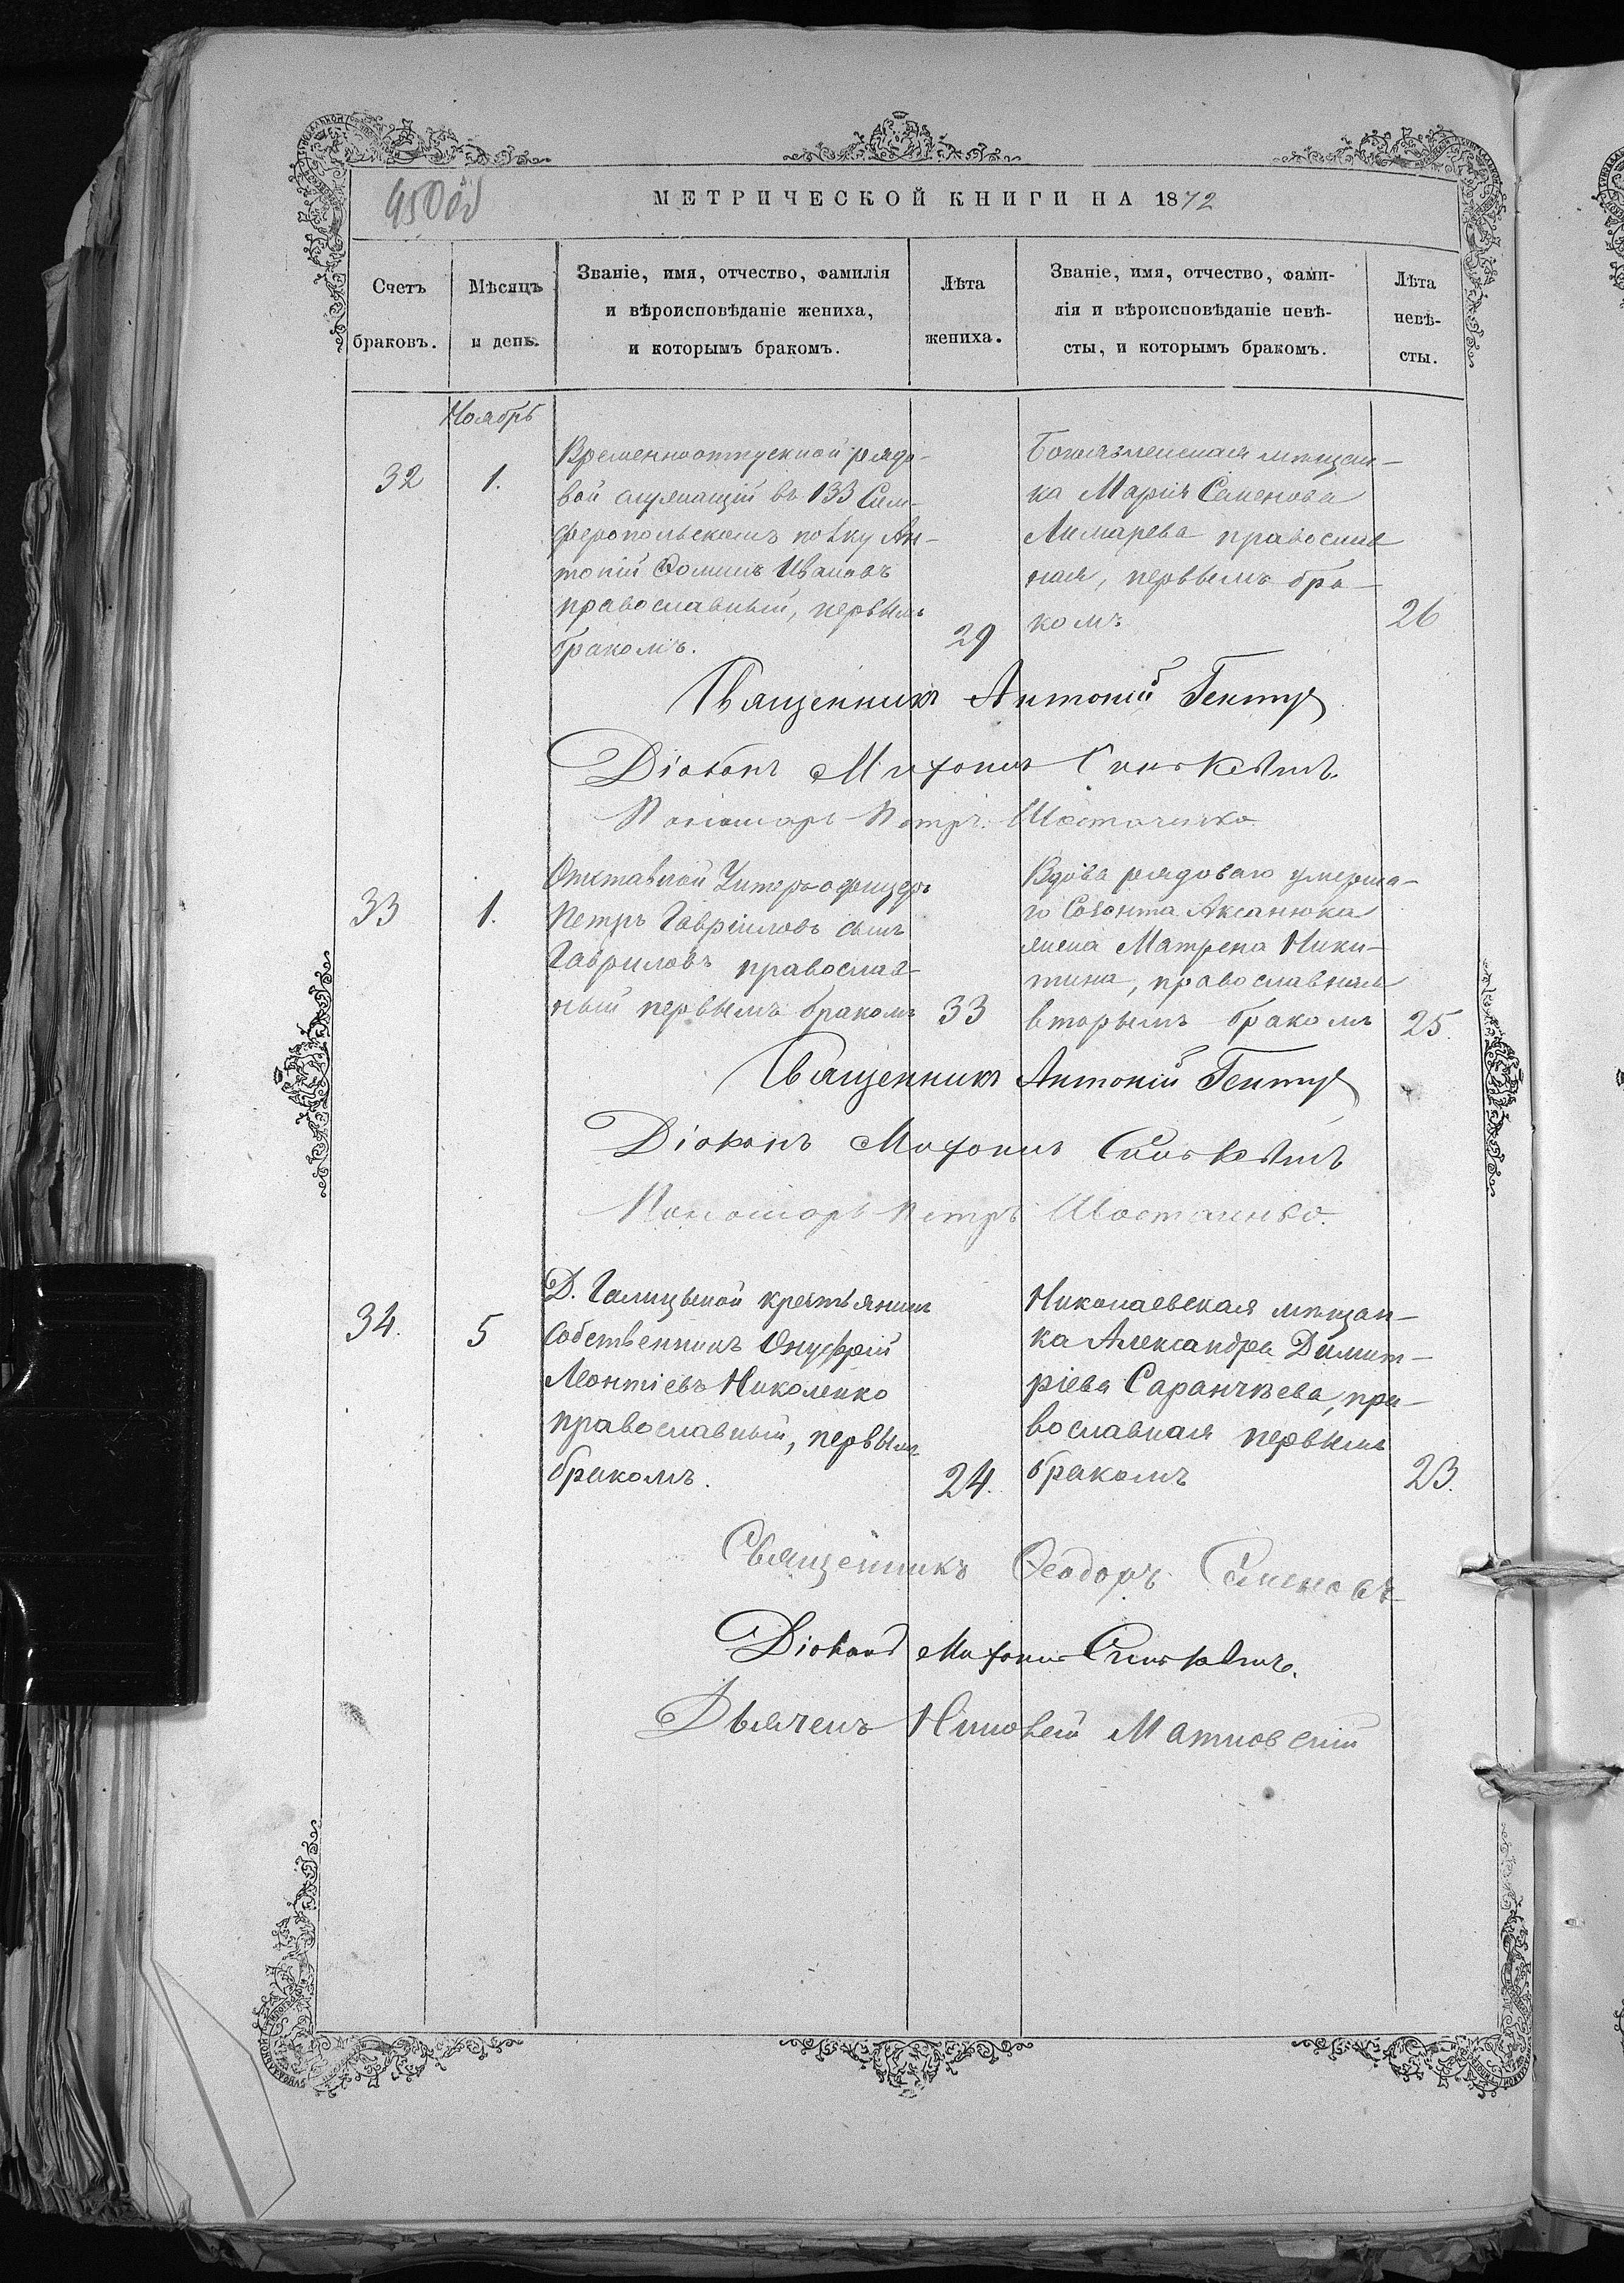 МЕТРИЧЕСКОЙ КНИГИ НА 1872
Счетъ браковъ.
Мѣсяцъ и день.
Званіе, имя, отчество, фамилія
и вѣроисповѣданіе жениха,
и которымъ бракомъ.
Лѣта жениха.
Званіе, имя, отчество, фами-
лія и вѣроисповѣданіе невѣ-
сты, и которымъ бракомъ.
Лѣта невѣ-
сты.
Ноябрь
32
1.
Временноотпускной рядо-
вой служащій въ 133 Сим-
феропольскомъ полку Ан-
тоній Ѳоминъ Ивановъ
православный, первымъ
бракомъ.
29
мѣщан-
ка Марія Семенова
Лимарева православ
ная, первымъ бра-
комъ
26
Священникъ Антоній
Діаконъ
Пономарь Петръ
33
1.
Отставной Унтеръ-офицеръ
Петръ Гавріиловъ сынъ
Гавриловъ православ-
ный первымъ бракомъ
33
Вдова рядоваго умерша-
го Аксанюка
жена Матрена Ники-
тина, православная
вторымъ бракомъ
25.
Священникъ Антоній
Діаконъ
Пономарь Петръ
34.
5
Д. Галицыной крестьянинъ
собственникъ Онуфрій
Леонтіевъ Николенко
православный, первымъ
бракомъ.
24.
Николаевская мѣщан-
ка Александра Димит-
ріева Саранчѣева, пра-
вославная первымъ
бракомъ
23.
Священникъ Ѳеодоръ Семеновъ
Діаконъ
Дьячекъ